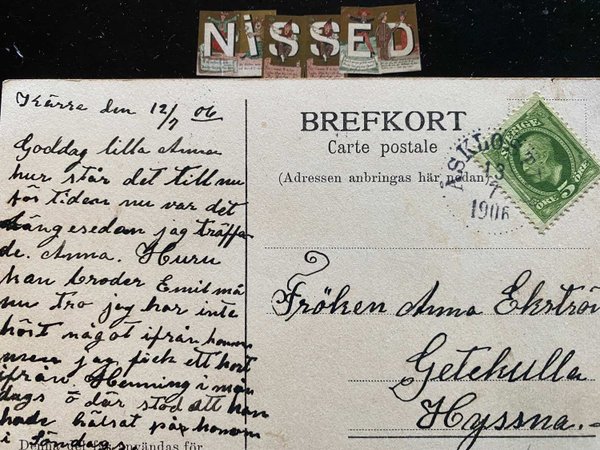 NiSSED
Kärre den 12/7 06
Goddag lilla Anna
hur står det till nu
för tiden nu var det
länge sedan jag träffa
de. Anna. Huru
kan broder Emil må
nu tro jag har inte
hört något ifrån honom
men jag fick ett kort
ifrån Henning i mån
dags o där stod att han
hade hälsat på honom
i Söndag
BREFKORT
Carte postale
(Adressen anbringas här nedan)
ÅSKLOS
13
7
1906
SVERIGE
5
ÖRE
Fröken Anna Ekströ
Getehulla
Hyssna.
användas för